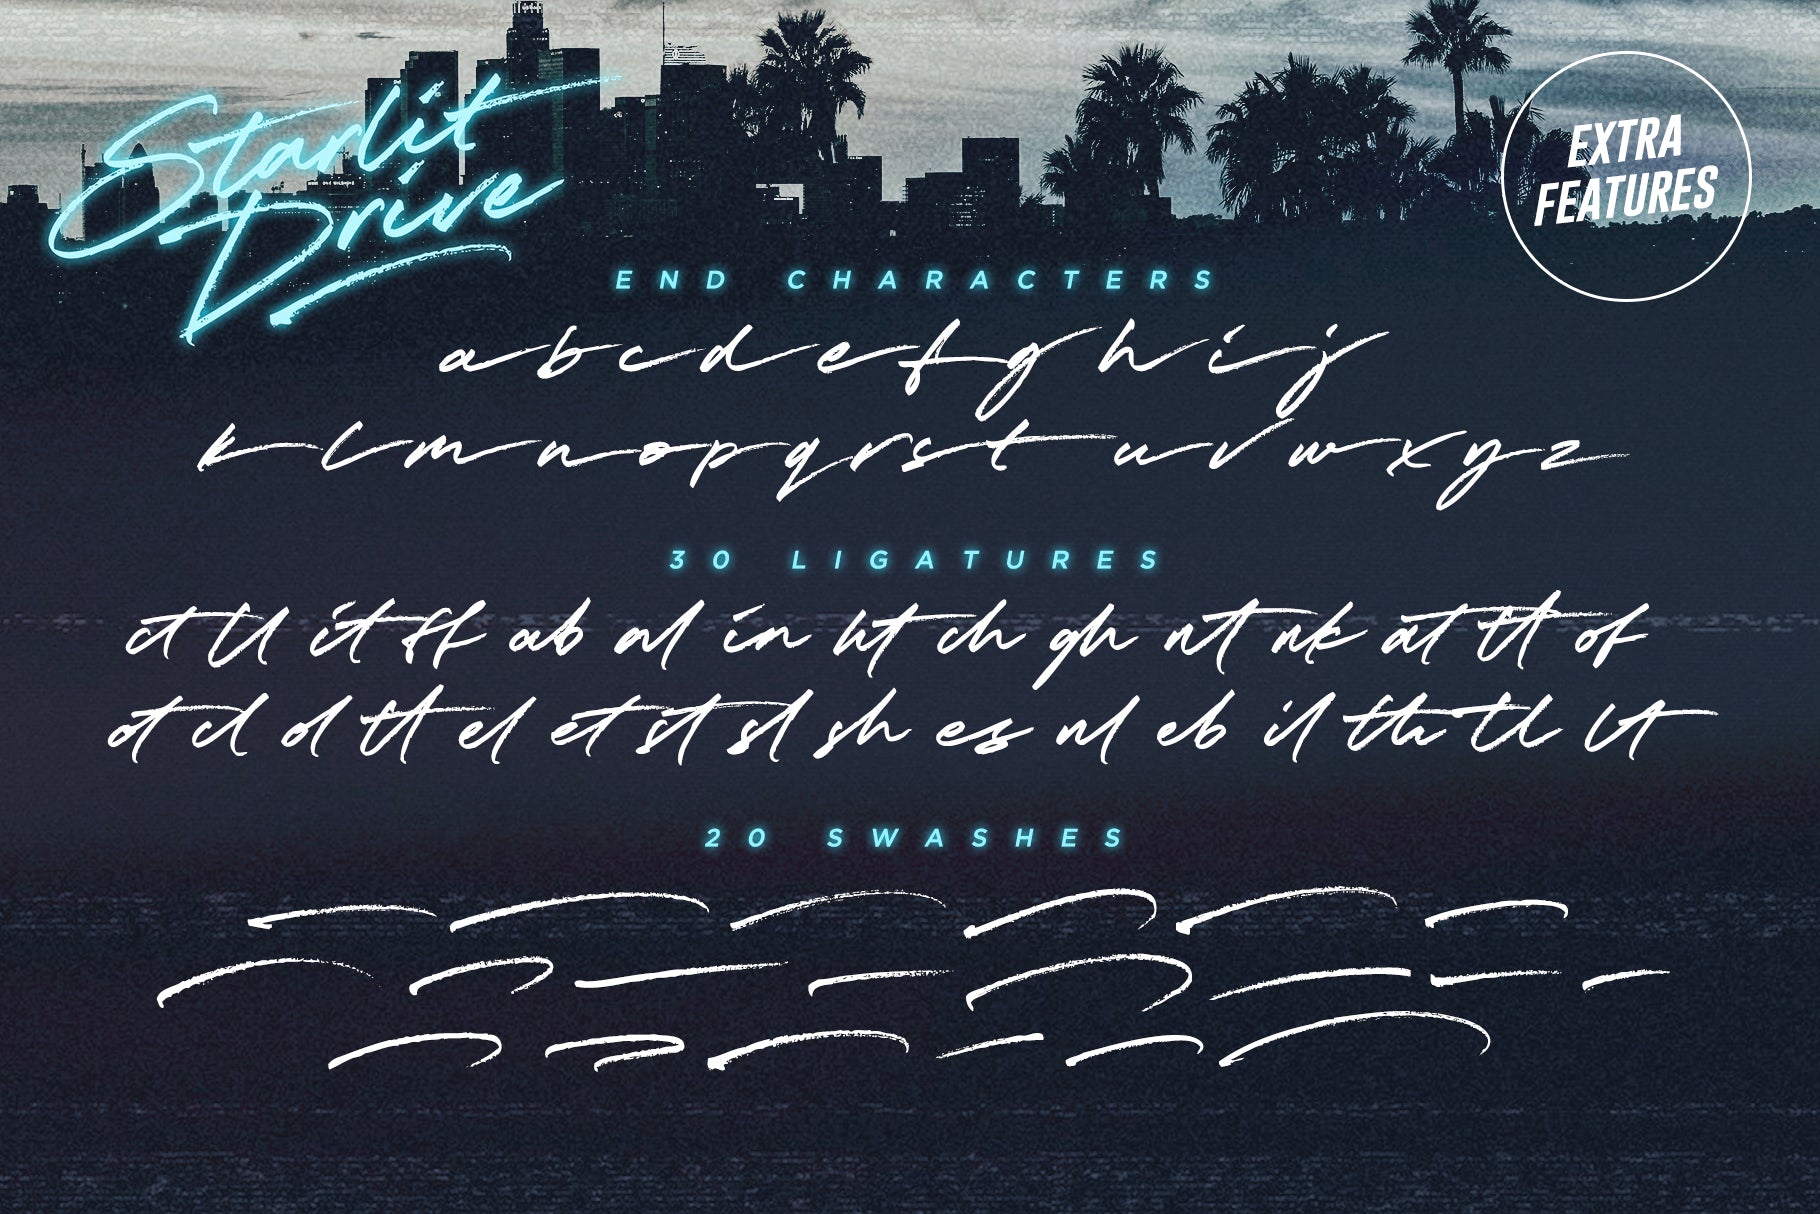 Starlit
Drive
EXTRA
FEATURES
END CHARACTERS
a b c d e f g h i j
k l m n o p q r s t u v w x y z
30 LIGATURES
ct ll it ff ab al in ht ch gh nt nk at tt of
ot cl ol ft el et st sl sh es nl eb il tta tl lt
20 SWASHES